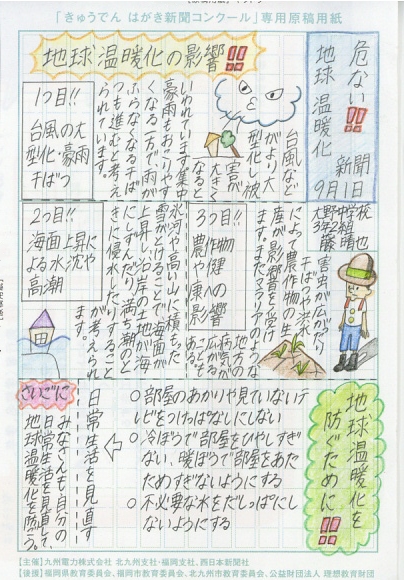 「きゅうでん はがき新聞コンクール」専用原稿用紙
危ない!!
地球温暖化
新聞
9月1日
地球温暖化の影響!!
1つ目!!
台風の大
型化・豪雨
干ばつ
台風など
がより大
型化し被
害が
大きく
なると
いわれています。集中
豪雨もおこりやす
くなる一方で、雨が
ふらなくなる干ば
つも進むと考え
られています。
2つ目!!
海面上昇に
よる水沈や
高潮
氷河や高い山に積もった
雪がとけることで海面が
上昇し、沿岸の土地が海
にしずんだり満ち潮のと
きに侵水したりすること
が考えられ
ます。
3つ目!!
農作物
や健
康への
影響
害虫が広がり、
干ばつや洪水
によって農作物の生
産が影響を受け
ます。またマラリアのような
地方の
病気が
広がる
ことも
地球温暖化を
防ぐために!!
○部屋のあかりや見ていないテ
レビをつけっぱなしにしない
○冷ぼうで部屋をひやしすぎ
ない、暖ぼうで部屋をあた
ためすぎないようにする
○不必要な水をだしっぱにし
ないようにする
日常生活を見直す
さいごに
みなさんも、自分の
日常生活を見直して
地球温暖化を防ごう。
【主催】九州電力株式会社 北九州支社・福岡支社、西日本新聞社
【後援】福岡県教育委員会、福岡市教育委員会、北九州市教育委員会、公益財団法人 理想教育財団